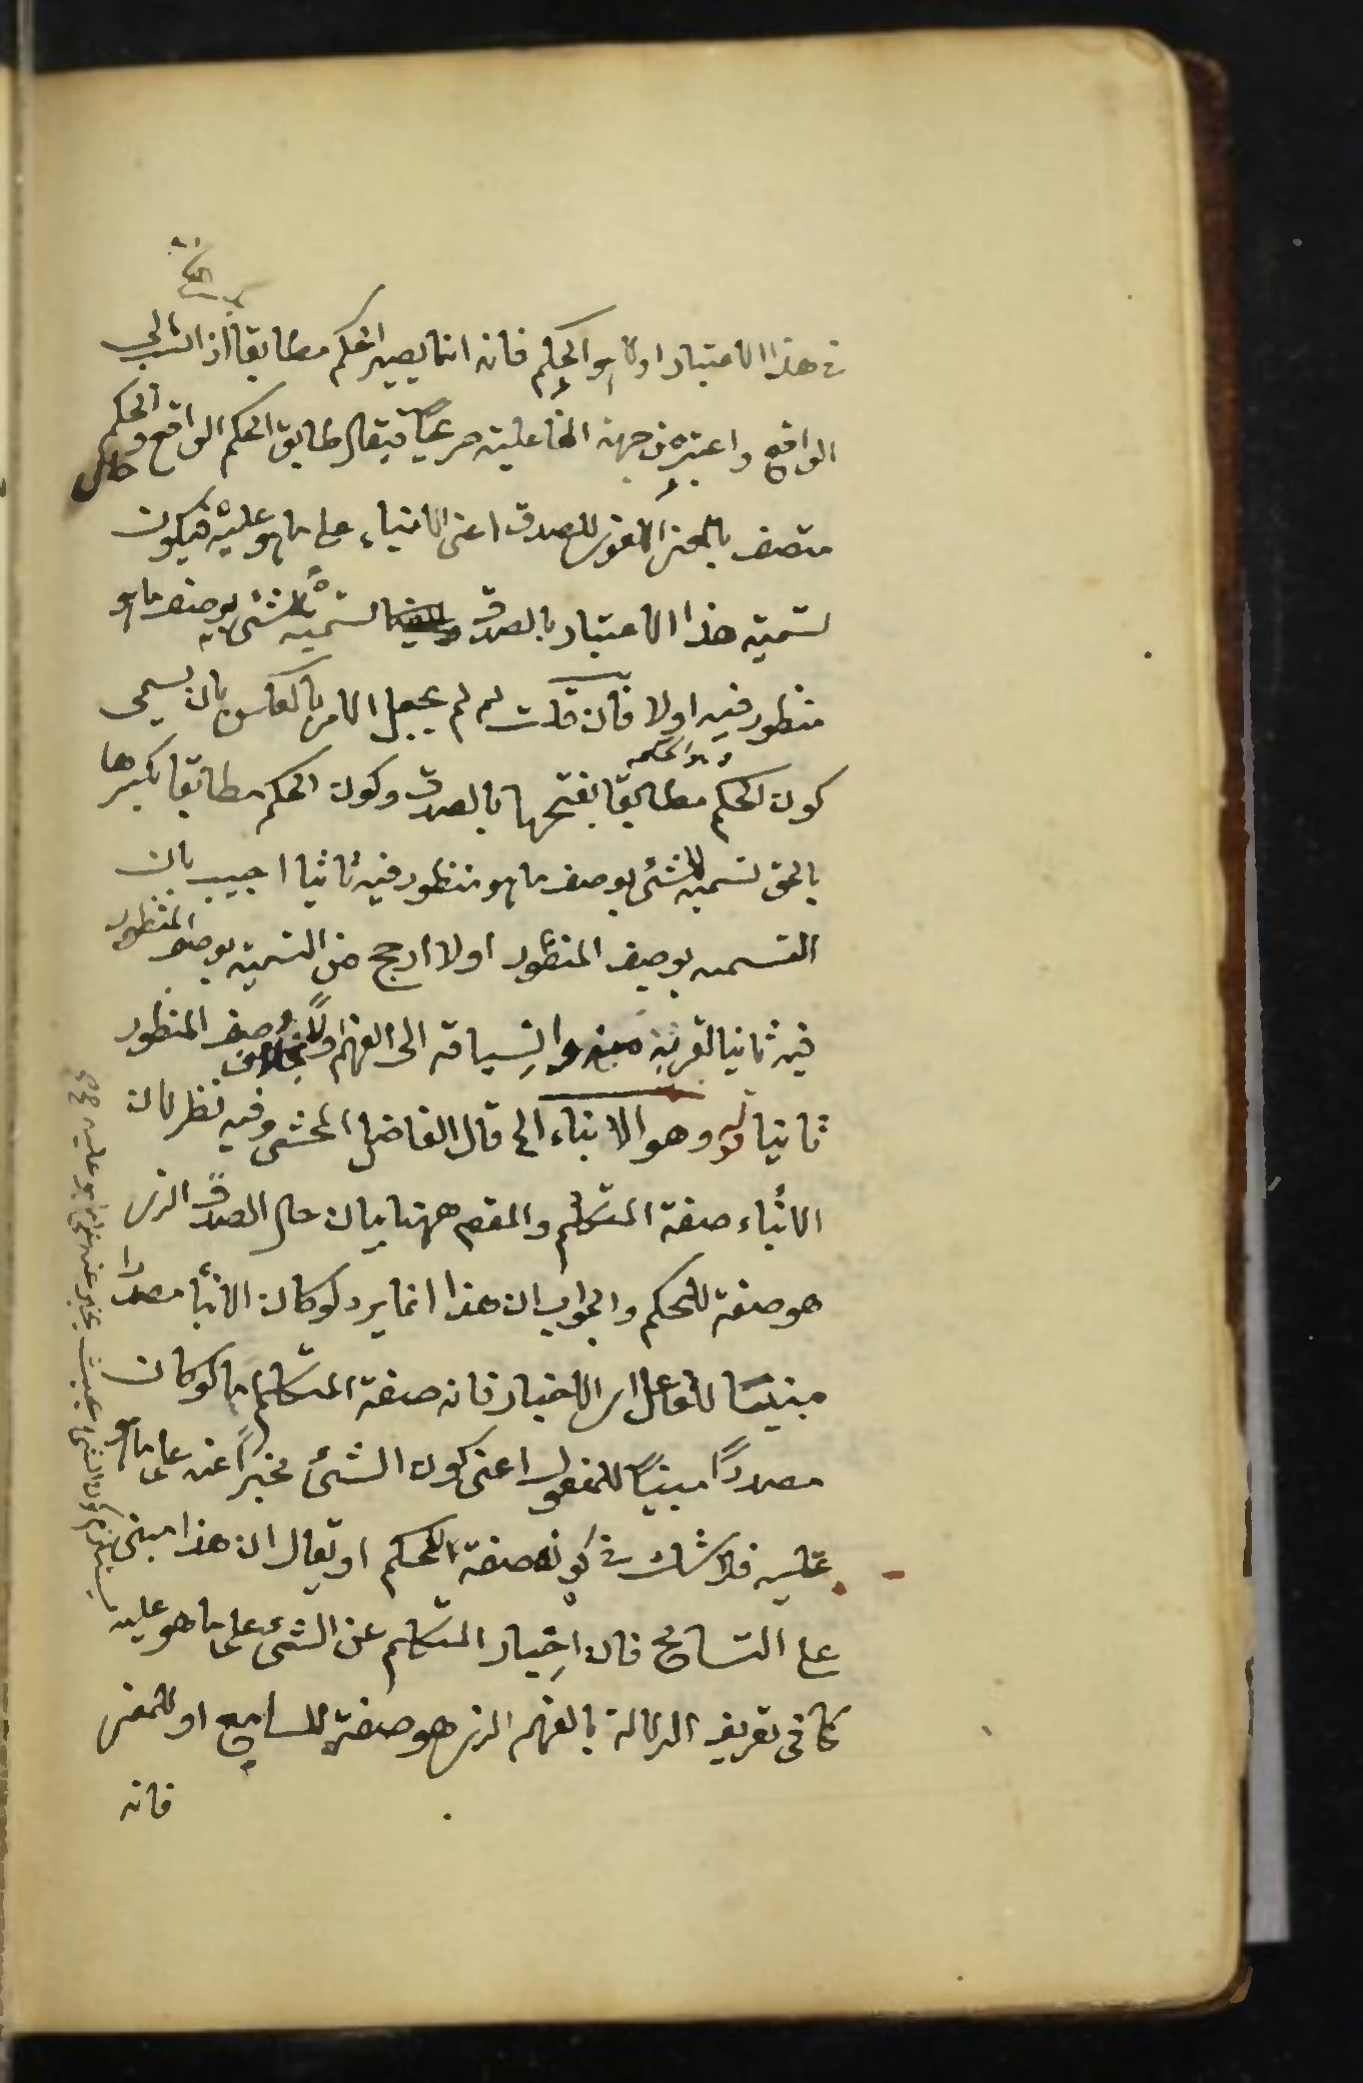 في هذا الاعتبار اولا هو الحكم فانه انما يصير الحكم مطابقا اذا نسب الى
الواقع واعتبر من جهة الفاعلية صريحا فيقال طابق الحكم الواقع والحكم
متصف بالمعنى اللغوي للصدق اعنى الانباء على ما هو عليه فيكون
تسمية هذا الاعتبار بالصدق تسمية للشئ بوصف ما هو
منظور فيه اولا فان قلت لم لم يجعل الامر بالعكس بان يسمى
كون الحكم مطابقا بفتحها بالصدق وكون الحكم مطابقا بكسرها
بالحق تسمية للشئ بوصف ما هو منظور فيه ثانيا اجيب بان
التسمية بوصف المنظور اولا ارجح من التسمية بوصف المنظور
فيه ثانيا لقربه منه وانسياقه الى الفهم اولا بخلاف وصف المنظور
ثانيا قوله وهو الانباء الخ قال الفاضل المحشى وفيه نظر لان
الانباء صفة المتكلم والمقصم ههنا بيان حال الصدق الذى
هو صفة للحكم والجواب ان هذا انما يرد لو كان الانباء مصدرا
مبنيا للفاعل اى الاخبار فانه صفة المتكلم اما لو كان
مصدرًا مبنيًا للمفعول اعنى كون الشئ مخبرًا عنه على ما هو
عليه فلا شك في كونه صفة للحكم او يقال ان هذا مبنى
على التسامح فان اخبار المتكلم عن الشئ على ما هو عليه
كما فى تعريف الدلالة بالفهم الذى هو صفة للسامع او للمعنى
فانه